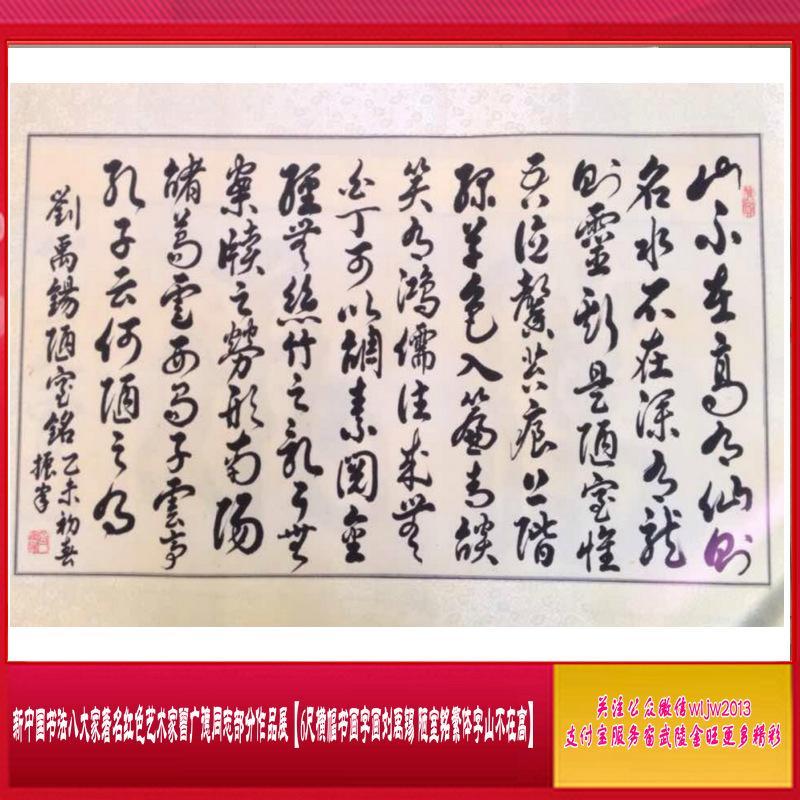 山不在高有仙則
名水不在深有龍
則靈斯是陋室惟
吾德馨苔痕上階
綠草色入簾青談
笑有鴻儒往來無
白丁可以調素閱金
經無絲竹之亂耳無
案牘之勞形南陽
諸葛廬西蜀子雲亭
孔子云何陋之有
劉禹錫陋室銘 乙未初春
新中国书法八大家著名红色艺术家同志部分作品展【6尺横幅书画字画刘禹锡 陋室铭繁体字山不在高】
关注公众微信wljw2013
支付宝服务窗武陵金旺更多精彩